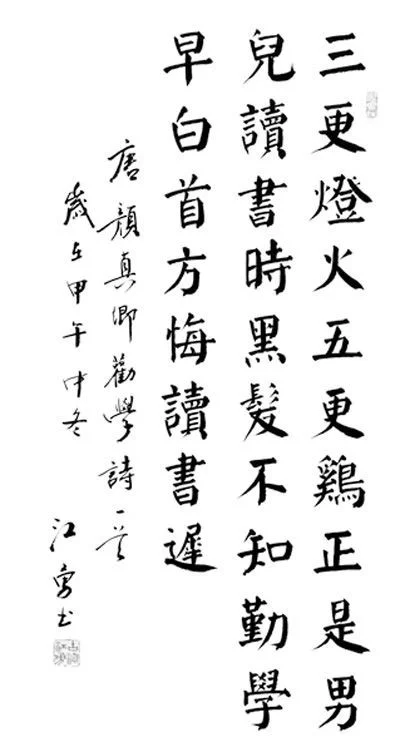 三更燈火五更鷄正是男
兒讀書時黑髮不知勤學
早白首方悔讀書遲
唐顏真卿勸學詩一首
歲在甲午中冬
江勇书